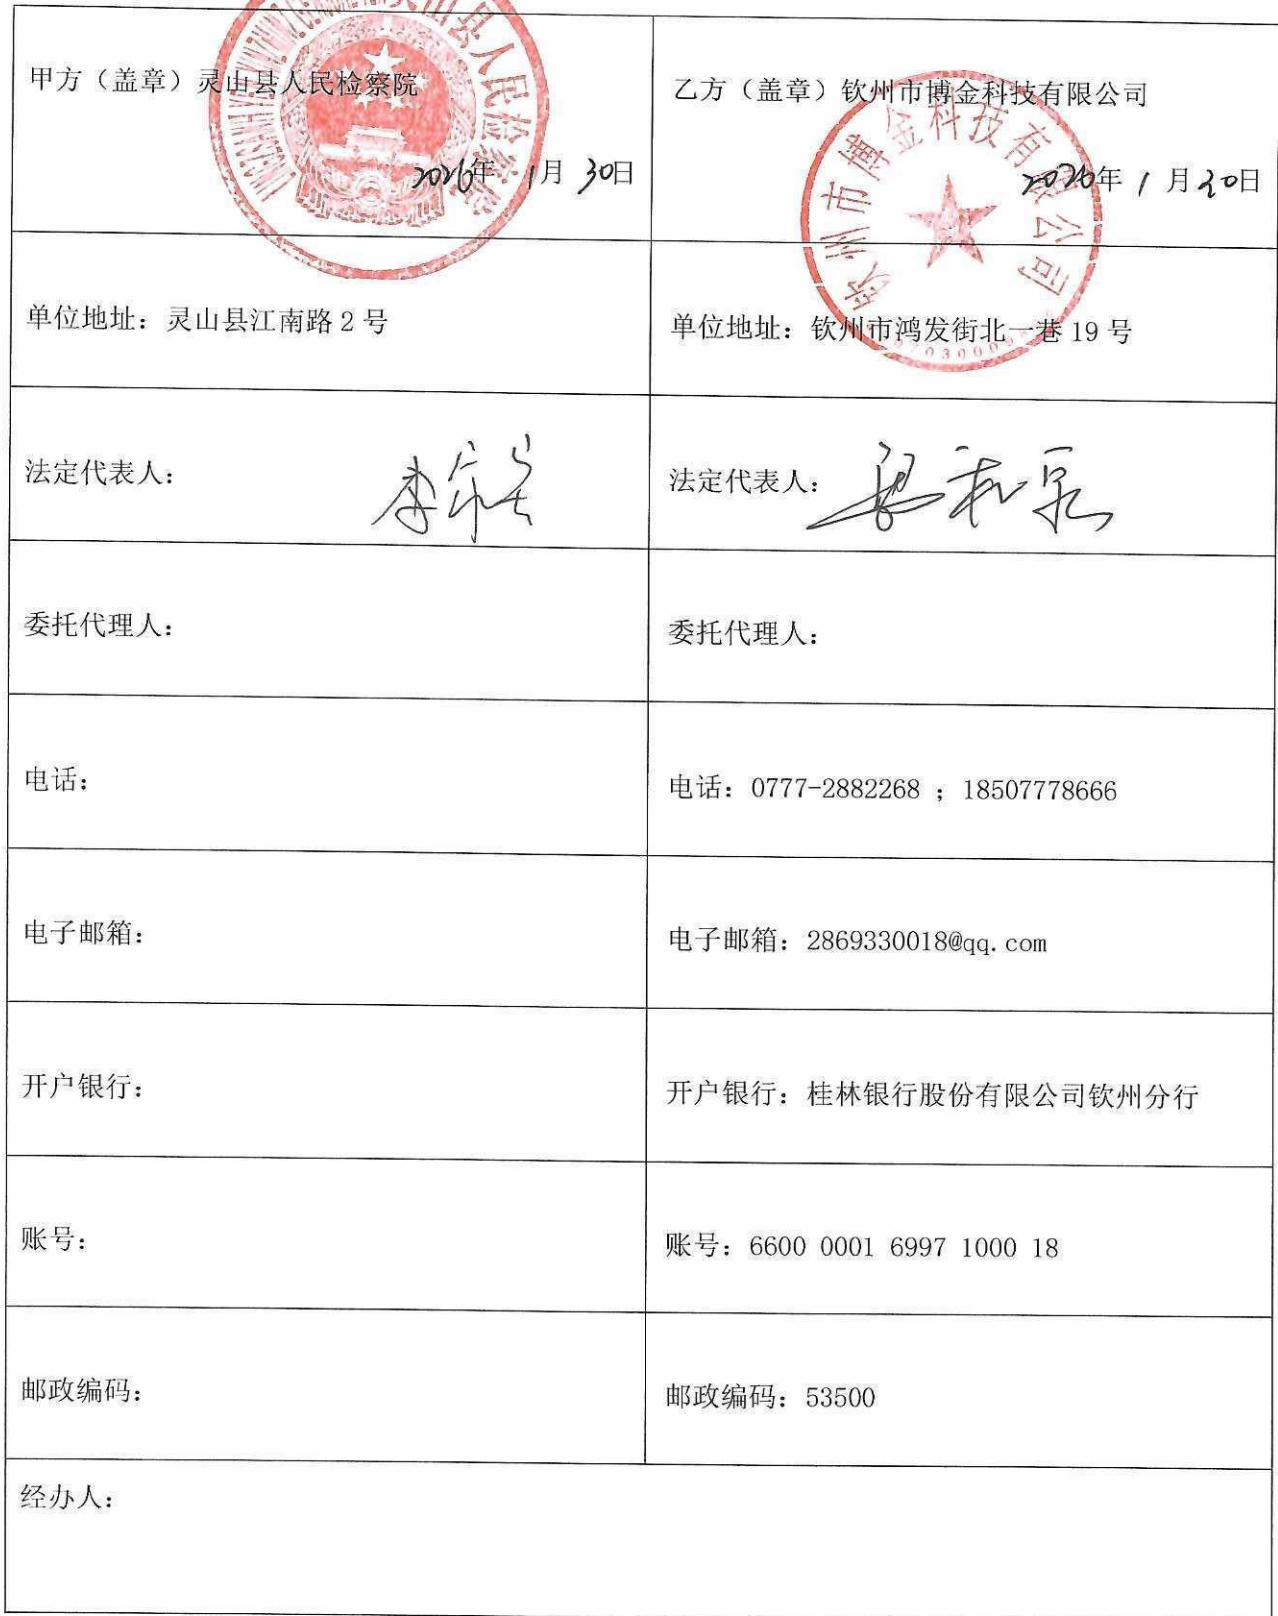 甲方（盖章）灵山县人民检察院
2026年 1月 30日
乙方（盖章）钦州市博金科技有限公司
2026年 1 月 30日
钦州市博金科技有限公司
单位地址：灵山县江南路 2 号
单位地址：钦州市鸿发街北一巷 19 号
法定代表人：
法定代表人：
委托代理人：
委托代理人：
电话：
电话：0777-2882268 ；18507778666
电子邮箱：
电子邮箱：2869330018@qq.com
开户银行：
开户银行：桂林银行股份有限公司钦州分行
账号：
账号：6600 0001 6997 1000 18
邮政编码：
邮政编码：53500
经办人：